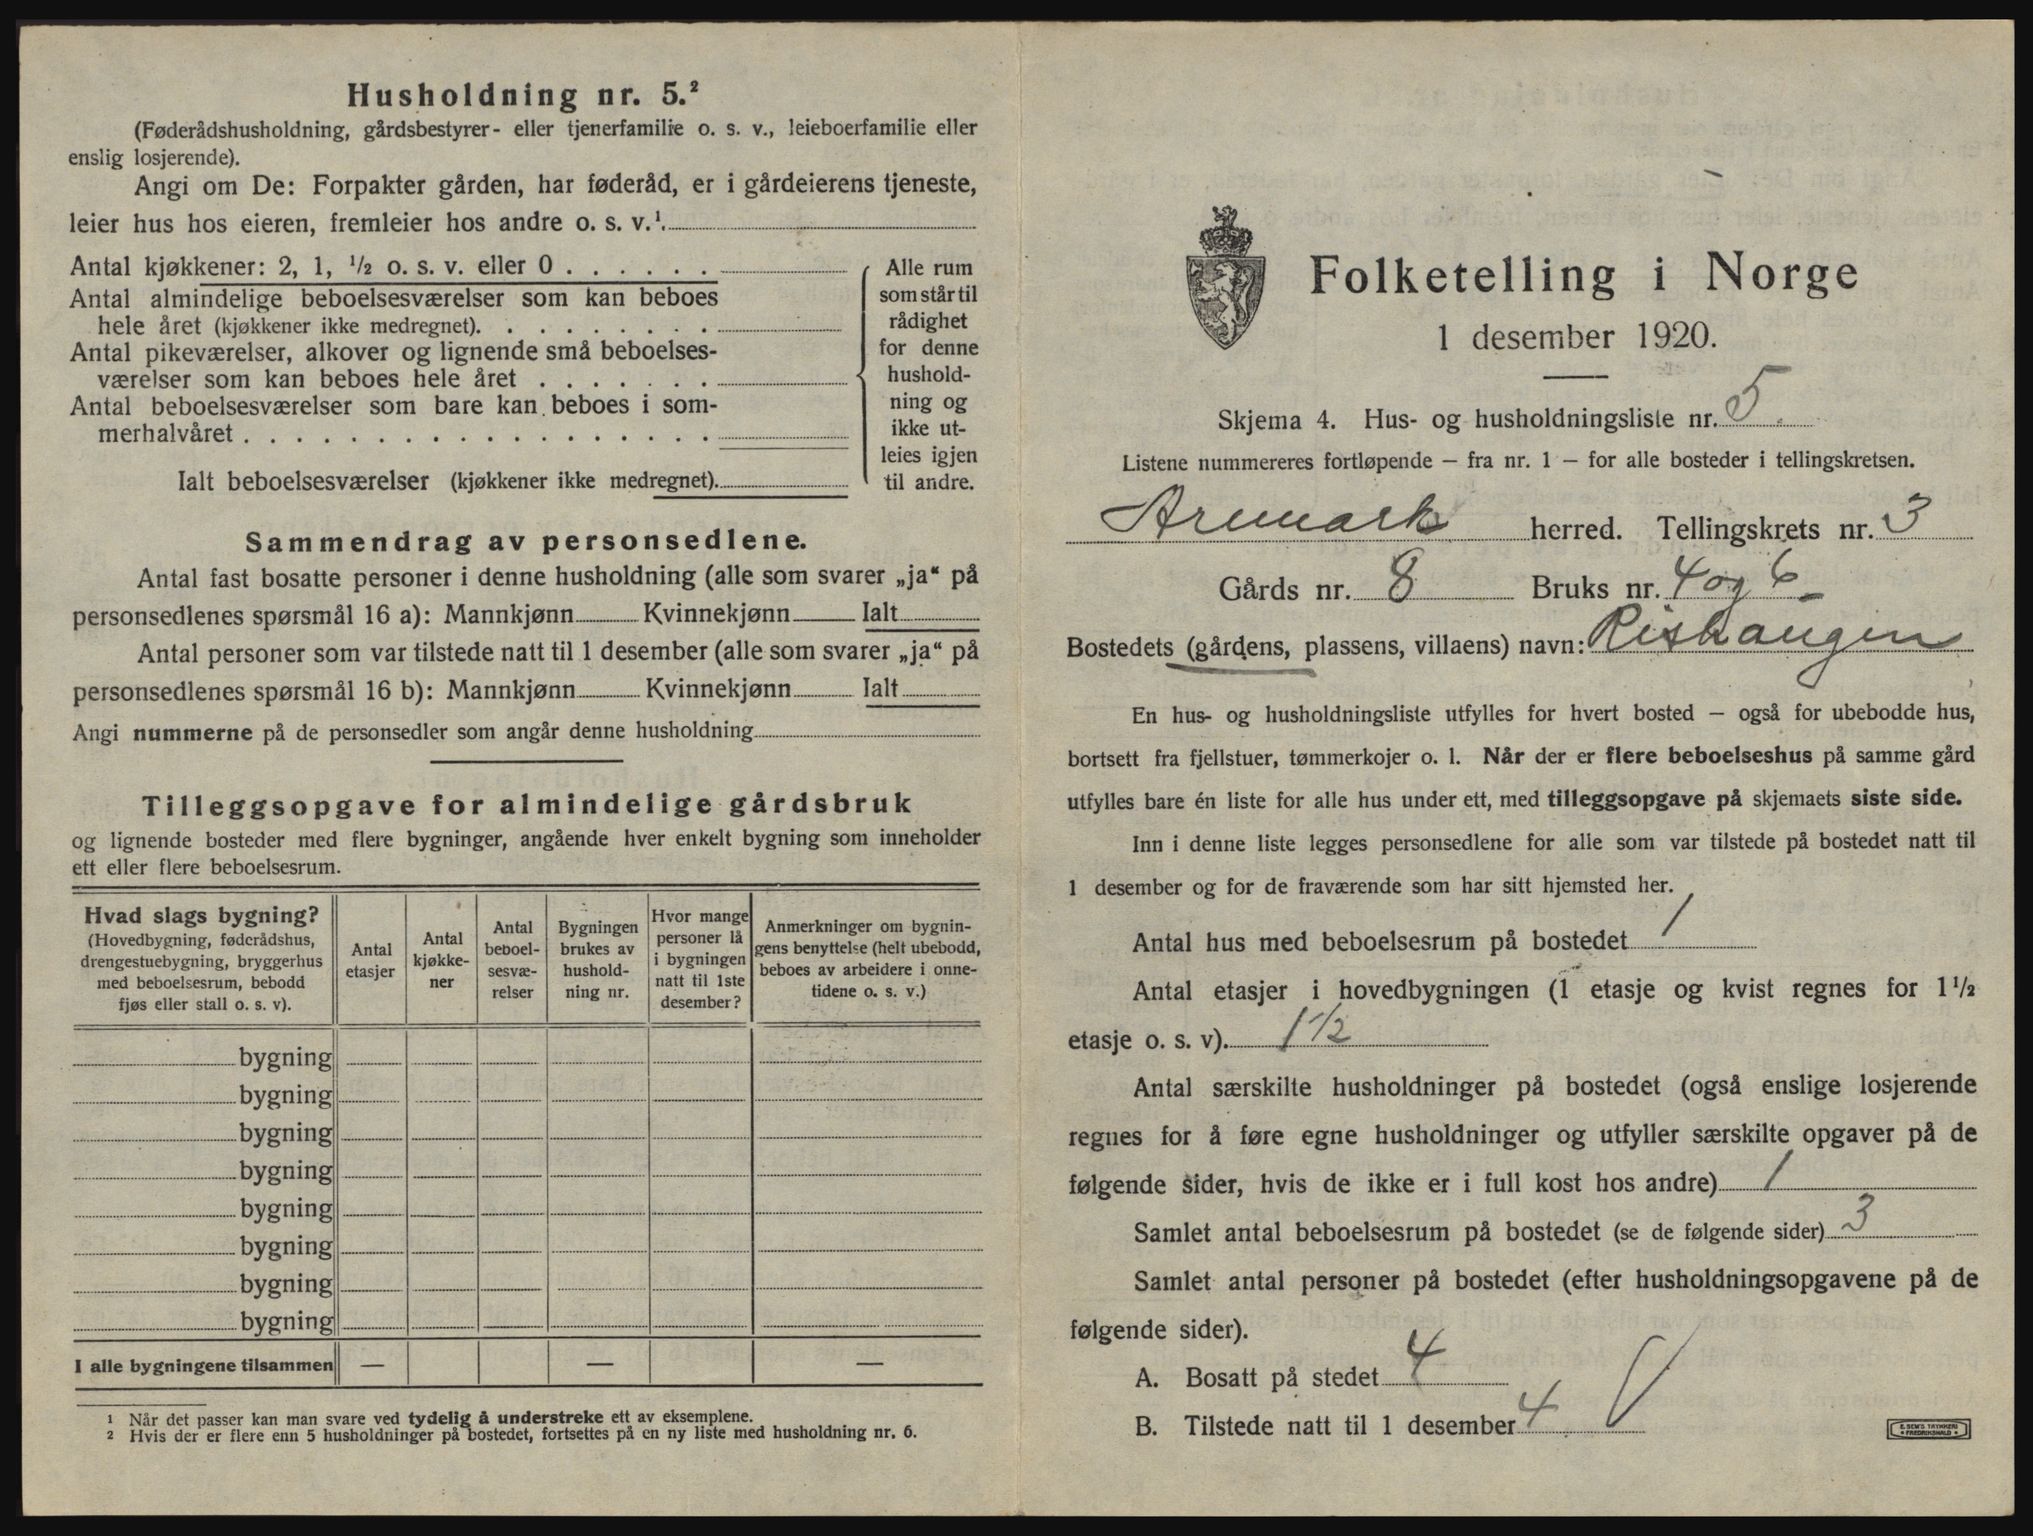 Husholdning nr. 5.²
(Føderådshusholdning, gårdsbestyrer- eller tjenerfamilie o. s. v., leieboerfamilie eller
enslig losjerende).
Angi om De: Forpakter gården, har føderåd, er i gårdeierens tjeneste,
leier hus hos eieren, fremleier hos andre o. s. v.¹.
Antal kjøkkener: 2, 1, ½ o. s. v. eller 0 . . . . . .
Antal almindelige beboelsesværelser som kan beboes
hele året (kjøkkener ikke medregnet). . . . . . . . .
Antal pikeværelser, alkover og lignende små beboelses-
værelser som kan beboes hele året . . . . . . .
Antal beboelsesværelser som bare kan beboes i som-
merhalvåret . . . . . . . . . . . . . . . . . .
Ialt beboelsesværelser (kjøkkener ikke medregnet).
Alle rum
som står til
rådighet
for denne
hushold-
ning og
ikke ut-
leies igjen
til andre.
Sammendrag av personsedlene.
Antal fast bosatte personer i denne husholdning (alle som svarer „ja“ på
personsedlenes spørsmål 16 a): Mannkjønn Kvinnekjønn Ialt
Antal personer som var tilstede natt til 1 desember (alle som svarer „ja“ på
personsedlenes spørsmål 16 b): Mannkjønn Kvinnekjønn Ialt
Angi nummerne på de personsedler som angår denne husholdning
Tilleggsopgave for almindelige gårdsbruk
og lignende bosteder med flere bygninger, angående hver enkelt bygning som inneholder
ett eller flere beboelsesrum.
Hvad slags bygning?
(Hovedbygning, føderådshus,
drengestuebygning, bryggerhus
med beboelsesrum, bebodd
fjøs eller stall o. s. v).
Antal
etasjer
Antal
kjøkke-
ner
Antal
beboel-
sesvæ-
relser
Bygningen
brukes av
hushold-
ning nr.
Hvor mange
personer lå
i bygningen
natt til 1ste
desember?
Anmerkninger om bygnin-
gens benyttelse (helt ubebodd,
beboes av arbeidere i onne-
tidene o. s. v.)
bygning
bygning
bygning
bygning
bygning
bygning
bygning
bygning
I alle bygningene tilsammen — — —
¹ Når det passer kan man svare ved tydelig å understreke ett av eksemplene.
² Hvis der er flere enn 5 husholdninger på bostedet, fortsettes på en ny liste med husholdning nr. 6.
Folketelling i Norge
1 desember 1920.
Skjema 4. Hus- og husholdningsliste nr. 5.
Listene nummereres fortløpende — fra nr. 1 — for alle bosteder i tellingskretsen.
Aremark herred. Tellingskrets nr. 3
Gårds nr. 8 Bruks nr. 4 og 6
Bostedets (gårdens, plassens, villaens) navn: Rishaugen
En hus- og husholdningsliste utfylles for hvert bosted — også for ubebodde hus,
bortsett fra fjellstuer, tømmerkojer o. l. Når der er flere beboelseshus på samme gård
utfylles bare én liste for alle hus under ett, med tilleggsopgave på skjemaets siste side.
Inn i denne liste legges personsedlene for alle som var tilstede på bostedet natt til
1 desember og for de fraværende som har sitt hjemsted her.
Antal hus med beboelsesrum på bostedet 1
Antal etasjer i hovedbygningen (1 etasje og kvist regnes for 1½
etasje o. s. v). 1 1/2
Antal særskilte husholdninger på bostedet (også enslige losjerende
regnes for å føre egne husholdninger og utfyller særskilte opgaver på de
følgende sider, hvis de ikke er i full kost hos andre) 1
Samlet antal beboelsesrum på bostedet (se de følgende sider) 3
Samlet antal personer på bostedet (efter husholdningsopgavene på de
følgende sider).
A. Bosatt på stedet 4
B. Tilstede natt til 1 desember 4
E. SEM'S TRYKKERI
FREDRIKSHALD